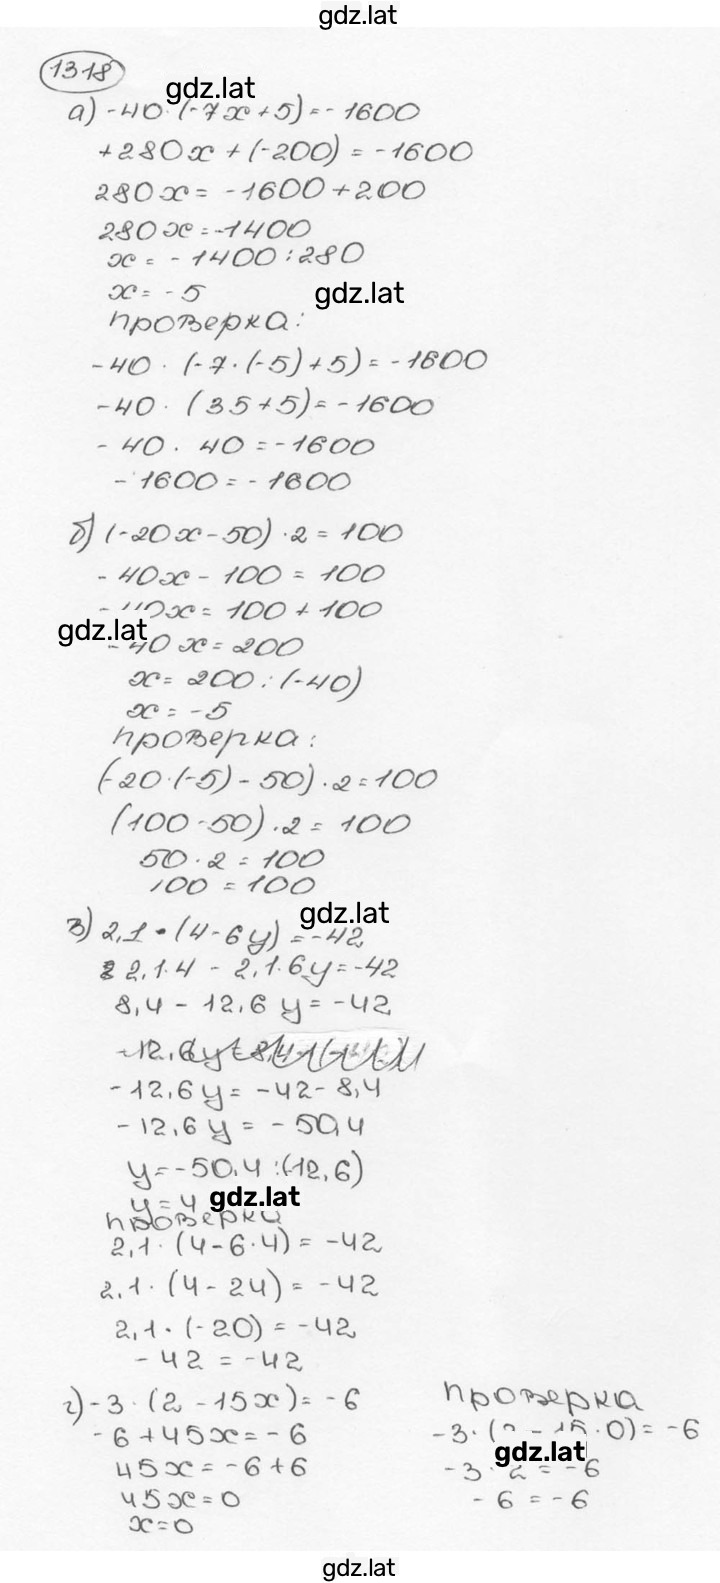 gdz.lat
1318
gdz.lat
а) -40·(-7x+5)=-1600
+280x+(-200)=-1600
280x=-1600+200
280x=-1400
x=-1400:280
x=-5
gdz.lat
проверка:
-40·(-7·(-5)+5)=-1600
-40·(35+5)=-1600
-40·40=-1600
-1600=-1600
б) (-20x-50)·2=100
-40x-100=100
-40x=100+100
gdz.lat
-40x=200
x=200:(-40)
x=-5
проверка:
(-20·(-5)-50)·2=100
(100-50)·2=100
50·2=100
100=100
gdz.lat
в) 2,1·(4-6y)=-42
2,1·4-2,1·6y=-42
8,4-12,6y=-42
-12,6y=-42-8,4
-12,6y=-50,4
y=-50,4:(-12,6)
y=4
gdz.lat
проверка
2,1·(4-6·4)=-42
2,1·(4-24)=-42
2,1·(-20)=-42
-42=-42
г) -3·(2-15x)=-6
-6+45x=-6
45x=-6+6
45x=0
x=0
проверка
-3·(2-15·0)=-6
gdz.lat
-3·2=-6
-6=-6
gdz.lat